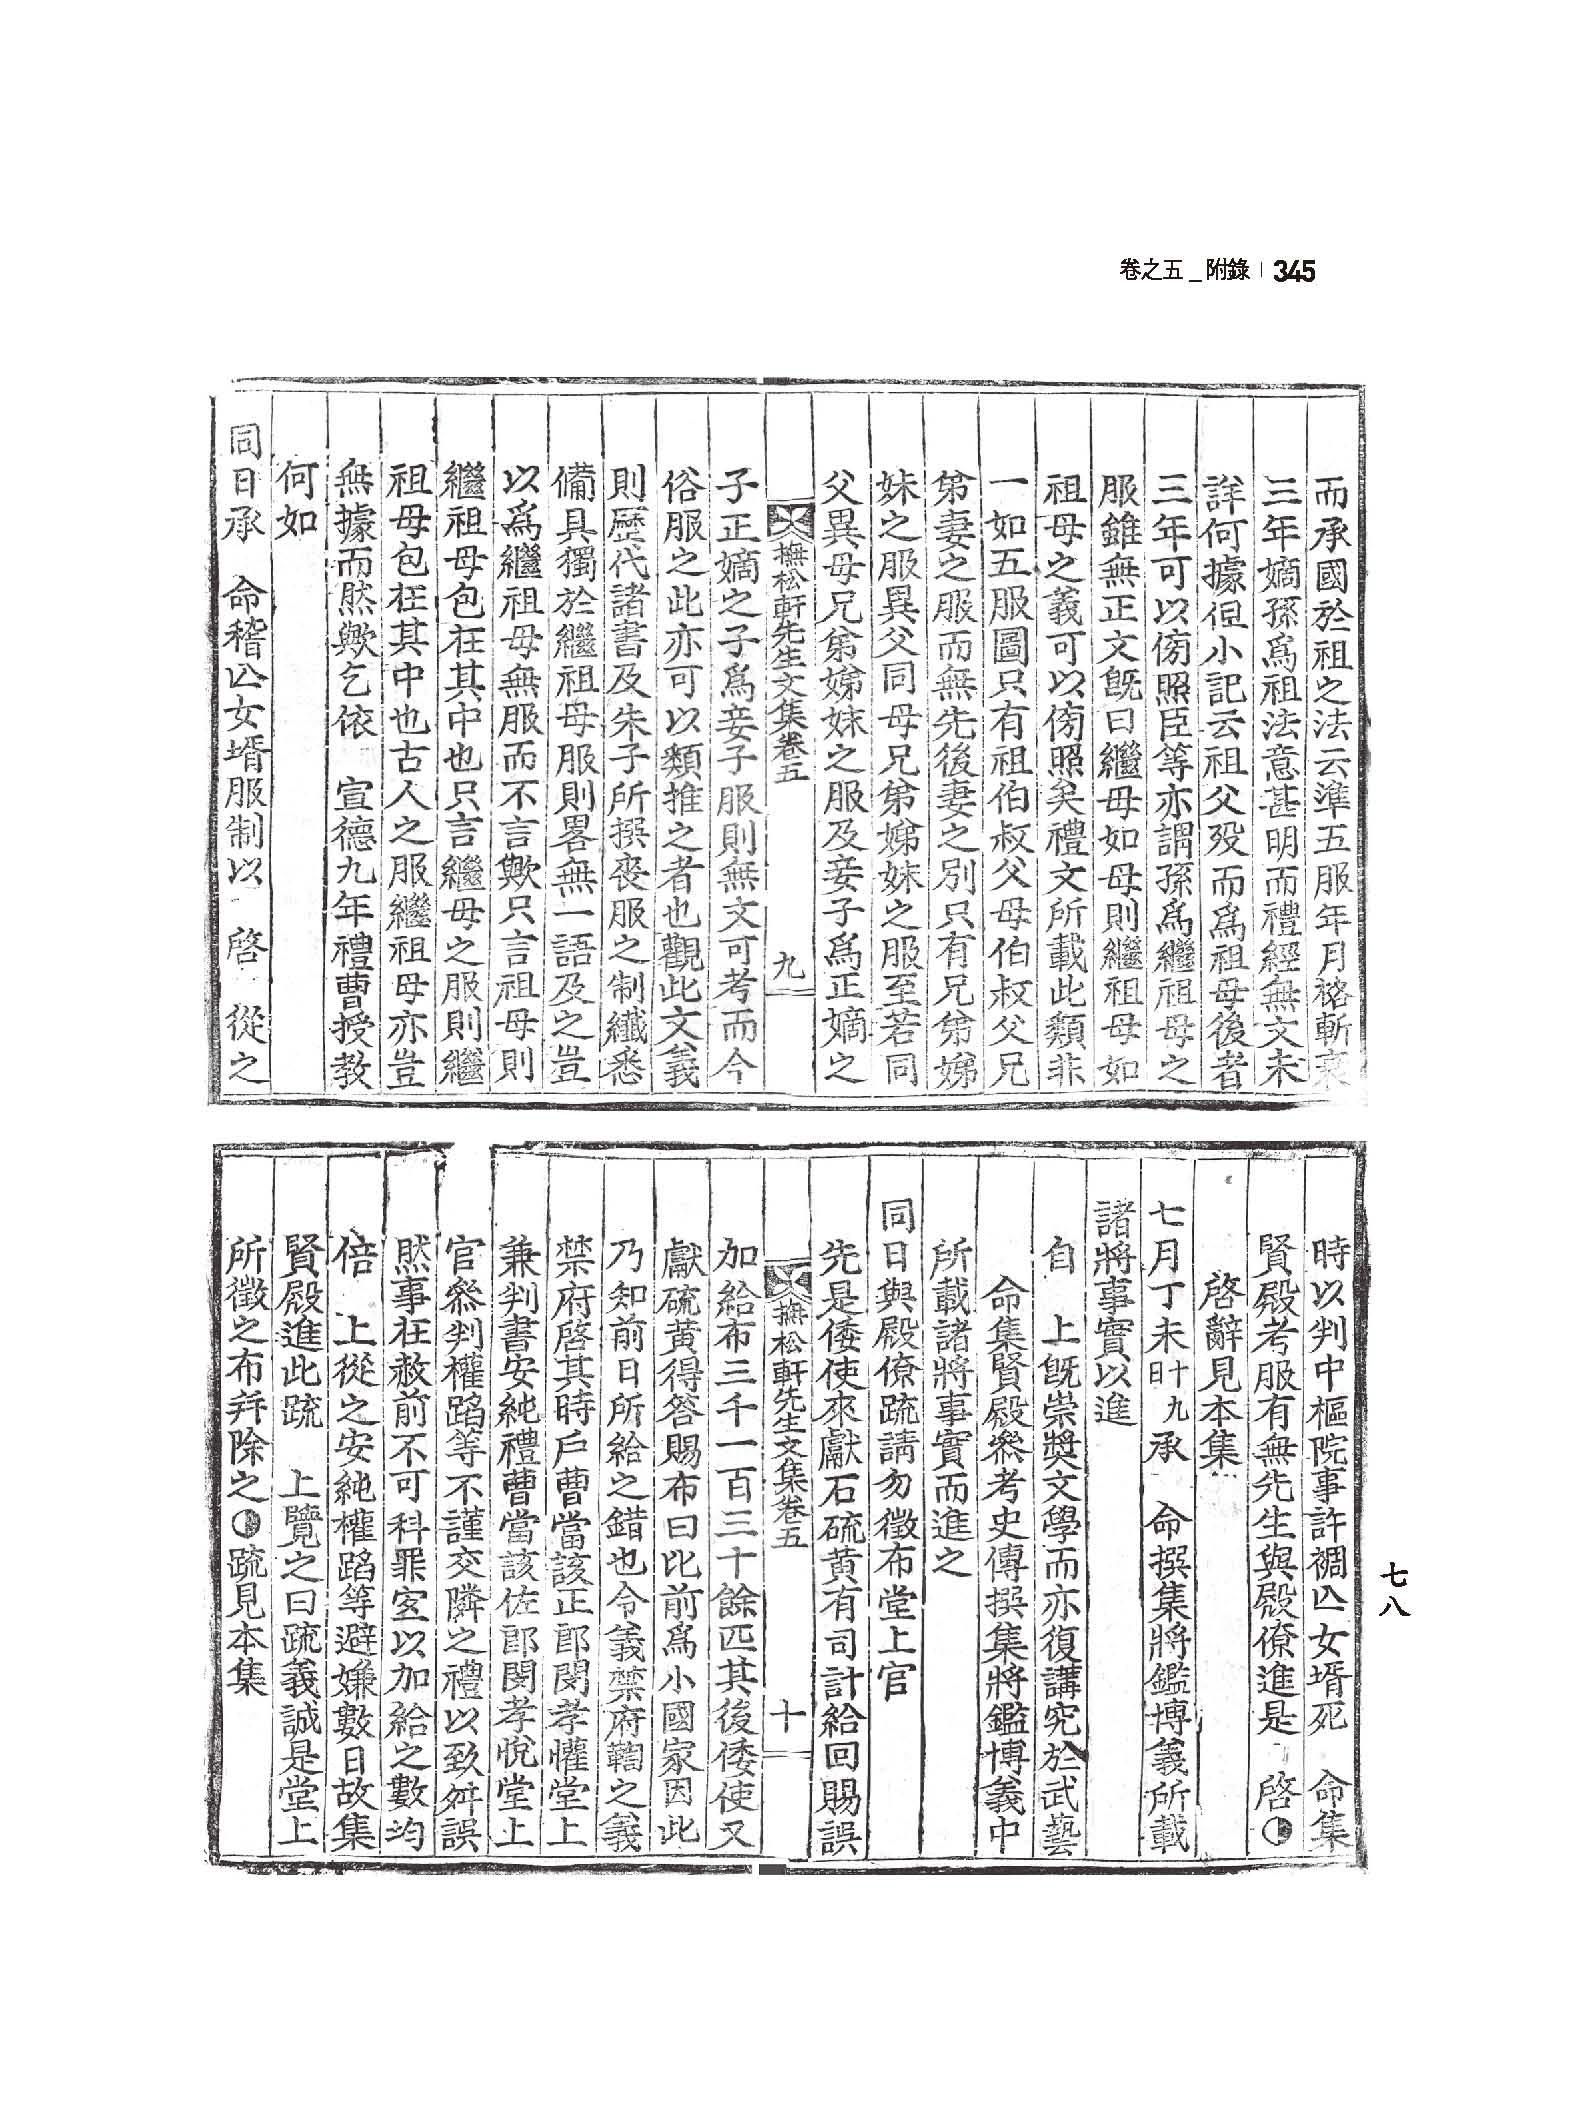 卷之五 _ 附錄 | 345
而承國於祖之法云準五服年月䘵斬衰
三年嫡孫爲祖法意甚明而禮經無文未
詳何據但小記云祖父歿而爲祖母後者
三年可以傍照臣等亦謂孫爲繼祖母之
服雖無正文旣曰繼母如母則繼祖母如
祖母之義可以傍照矣禮文所載此類非
一如五服圖只有祖伯叔父母伯叔父兄
弟妻之服而無先後妻之別只有兄弟娣
妹之服異父同母兄弟娣妹之服至若同
父異母兄弟娣妹之服及妾子爲正嫡之
撫松軒先生文集卷五 九
子正嫡之子爲妾子服則無文可考而今
俗服之此亦可以類推之者也觀此文義
則歷代諸書及朱子所撰喪服之制纖悉
備具獨於繼祖母服則畧無一語及之豈
以爲繼祖母無服而不言歟只言祖母則
繼祖母包在其中也只言繼母之服則繼
祖母包在其中也古人之服繼祖母亦豈
無據而然歟乞依 宣德九年禮曹授敎
何如
同日承 命稽亾女壻服制以 啓 從之
時以判中樞院事許稠亾女壻死 命集
賢殿考服有無先生與殿僚進是 啓◑
啓辭見本集
七月丁未十九日承 命撰集將鑑博義所載
諸將事實以進
自 上旣崇奬文學而亦復講究於武藝
命集賢殿叅考史傳撰集將鑑博義中
所載諸將事實而進之
同日與殿僚疏請勿徵布堂上官
先是倭使來獻石硫黃有司計給回賜誤
撫松軒先生文集卷五 十
加給布三千一百三十餘匹其後倭使又
獻硫黃得答賜布曰比前爲小國家因此
乃知前日所給之錯也令義禁府鞫之義
禁府啓其時戶曹當該正郎閔孝懽堂上
兼判書安純禮曹當該佐郎閔孝悅堂上
官叅判權蹈等不謹交隣之禮以致舛誤
然事在赦前不可科罪宜以加給之數均
倍 上從之安純權蹈等避嫌數日故集
賢殿進此疏 上覽之曰疏義誠是堂上
所徵之布幷除之◑疏見本集
七八